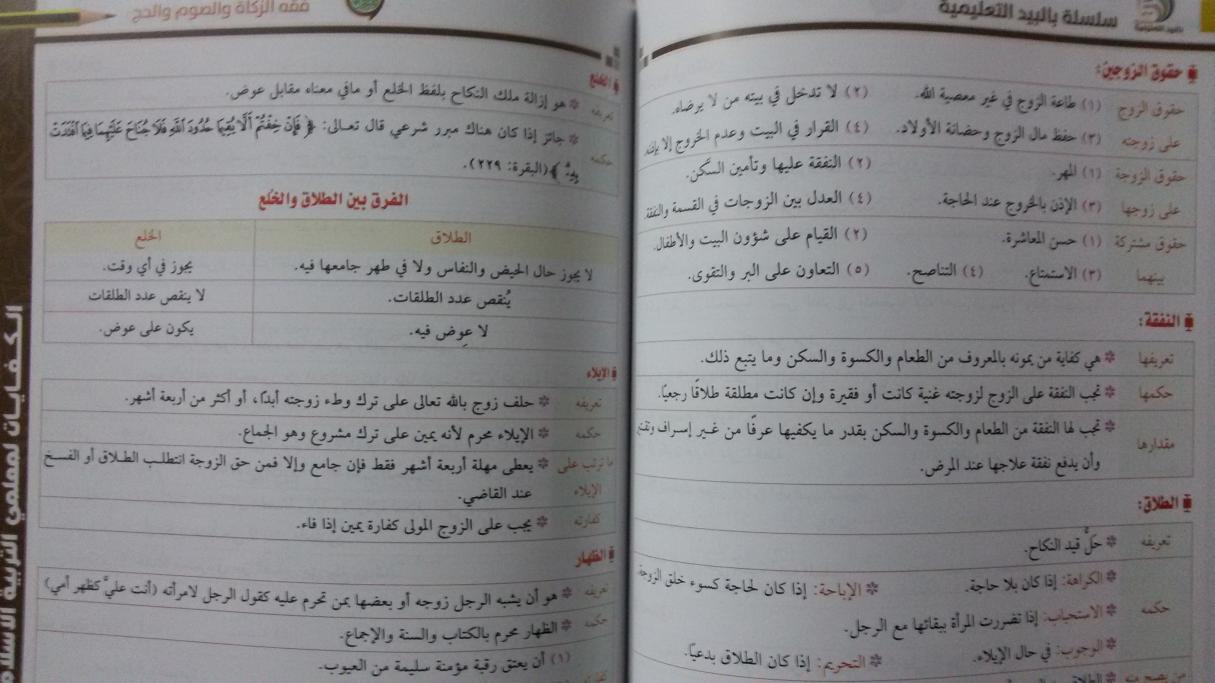 سلسلة بالبيد التعليمية
حقوق الزوجين:
حقوق الزوج
على زوجته
(١) طاعة الزوج في غير معصية الله. (٢) لا تدخل في بيته من لا يرضاه.
(٣) حفظ مال الزوج وحضانة الأولاد. (٤) القرار في البيت وعدم الخروج إلا بإذنه
حقوق الزوجة
على زوجها
(١) المهر. (٢) النفقة عليها وتأمين السكن.
(٣) الإذن بالخروج عند الحاجة. (٤) العدل بين الزوجات في القسمة والنفقة
حقوق مشتركة
بينهما
(١) حسن المعاشرة. (٢) القيام على شؤون البيت والأطفال.
(٣) الاستمتاع. (٤) التناصح. (٥) التعاون على البر والتقوى.
النفقة:
تعريفها
هي كفاية من يمونه بالمعروف من الطعام والكسوة والسكن وما يتبع ذلك.
حكمها
تجب النفقة على الزوج لزوجته غنية كانت أو فقيرة وإن كانت مطلقة طلاقًا رجعيًا.
مقدارها
تجب لها النفقة من الطعام والكسوة والسكن بقدر ما يكفيها عرفًا من غير إسراف
وأن يدفع نفقة علاجها عند المرض.
الطلاق:
تعريفه
حلُّ قيد النكاح.
حكمه
الكراهة: إذا كان بلا حاجة. الإباحة: إذا كان لحاجة كسوء خلق الزوجة
الاستحباب: إذا تضررت المرأة ببقائها مع الرجل.
الوجوب: في حال الإيلاء. التحريم: إذا كان الطلاق بدعيًا.
من يصح منه
فقه الزكاة والصوم والحج
الخلع
تعريفه
هو إزالة ملك النكاح بلفظ الخلع أو مافي معناه مقابل عوض.
حكمه
جائز إذا كان هناك مبرر شرعي قال تعالى: ﴿ فَإِنْ خِفْتُمْ أَلَّا يُقِيمَا حُدُودَ اللَّهِ فَلَا جُنَاحَ عَلَيْهِمَا فِيمَا افْتَدَتْ
بِهِ ﴾ (البقرة: ٢٢٩).
الفرق بين الطلاق والخُلع
الطلاق الخلع
لا يجوز حال الحيض والنفاس ولا في طهر جامعها فيه. يجوز في أي وقت.
يُنقص عدد الطلقات. لا ينقص عدد الطلقات
لا عِوض فيه. يكون على عوض.
الإيلاء
تعريفه
حلف زوج بالله تعالى على ترك وطء زوجته أبدًا، أو أكثر من أربعة أشهر.
حكمه
الإيلاء محرم لأنه يمين على ترك مشروع وهو الجماع.
ما ترتب على
الإيلاء
يعطى مهلة أربعة أشهر فقط فإن جامع وإلا فمن حق الزوجة انتطلب الطلاق أو الفسخ
عند القاضي.
كفارته
يجب على الزوج المولى كفارة يمين إذا فاء.
الظهار
تعريفه
هو أن يشبه الرجل زوجه أو بعضها بمن تحرم عليه كقول الرجل لامرأته (أنت عليَّ كظهر أمي)
حكمه
الظهار محرم بالكتاب والسنة والإجماع.
(١) أن يعتق رقبة مؤمنة سليمة من العيوب.
الكفايات لمعلمي التربية الاسلام